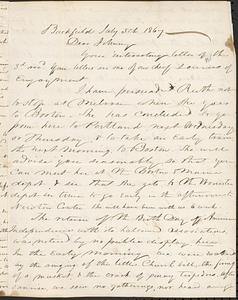 Buckfield July 5th 1867
Dear Johnny
Your interesting letter of the
3d and your letters is one of our chief sources of
enjoyment.
I have persuaded Ruth not
to stop at Melrose when she goes
to Boston. She has concluded to go
from here to Portland next Wednesday
or Thursday & to take an early train
the next morning to Boston. She will
advise you seasonably so that you
can meet her at the Boston & Maine
depot & see that she gets to the Worcester
depot in time to go early in the afternoon to
Newton Centre. She will have her with a trunk.
The return of the Birth Day of American
Independence with its hallowed associations
was noticed by no public display here.
In the early morning we were awakened
by the sound of the little Church bell, the firing
of a musket & the crack of many torpedoes. After
sunrise we saw no gatherings, nor heard any